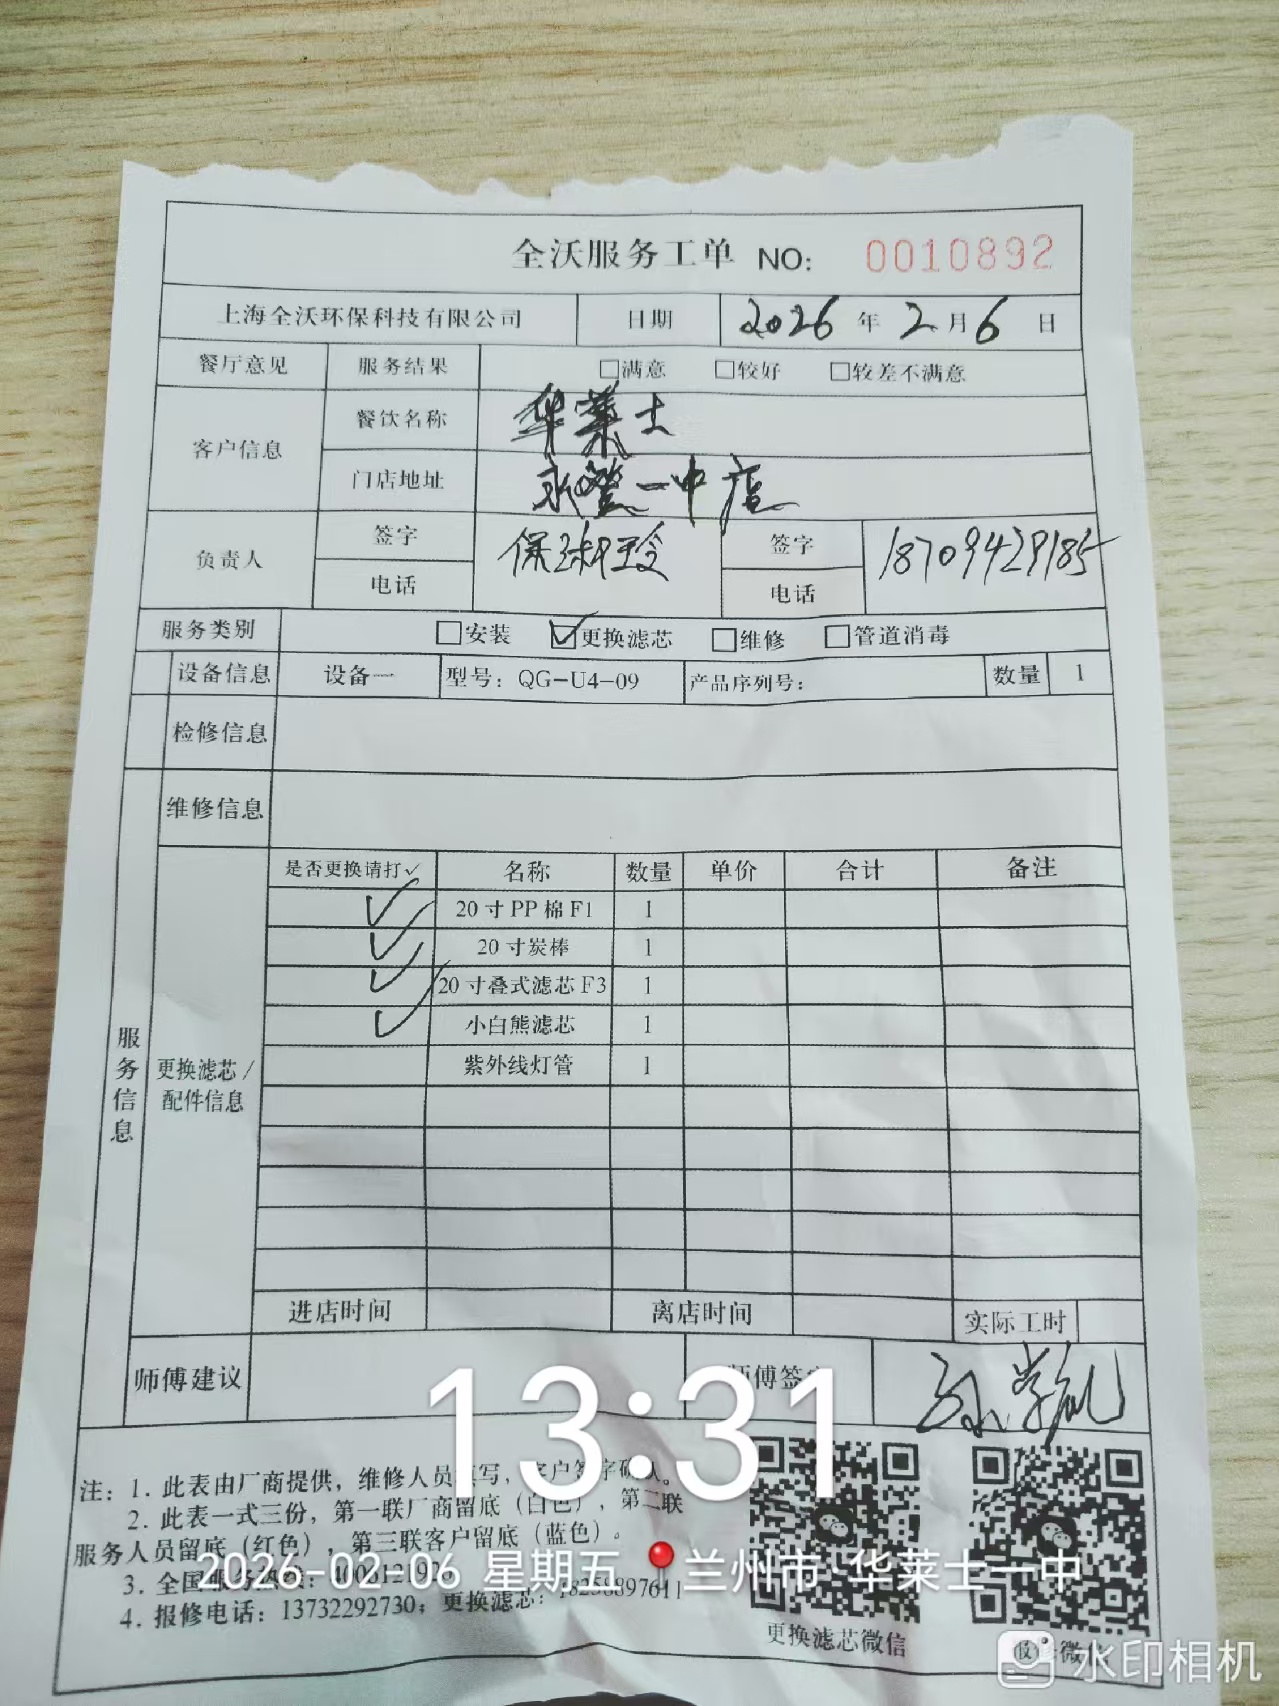 全沃服务工单 NO: 0010892
上海全沃环保科技有限公司 日期 2026年2月6日
餐厅意见 服务结果 □满意 □较好 □较差不满意
客户信息 餐饮名称 华莱士
门店地址 永登一中店
负责人 签字 签字
电话 电话 18709429185
服务类别 □安装 ☑更换滤芯 □维修 □管道消毒
设备信息 设备一 型号: QG-U4-09 产品序列号: 数量 1
检修信息
维修信息
服务信息
更换滤芯/
配件信息
是否更换请打✓ 名称 数量 单价 合计 备注
✓ 20寸PP棉F1 1
✓ 20寸炭棒 1
✓ 20寸叠式滤芯F3 1
✓ 小白熊滤芯 1
紫外线灯管 1
进店时间 离店时间 实际工时
师傅建议 师傅签字
13:31
注: 1. 此表由厂商提供, 维修人员填写, 客户签字确认。
2. 此表一式三份, 第一联厂商留底(白色), 第二联
服务人员留底(红色), 第三联客户留底(蓝色)。
3. 全国服务热线:
4. 报修电话: 13732292730; 更换滤芯:
2026-02-06 星期五 兰州市·华莱士一中
更换滤芯微信
水印相机